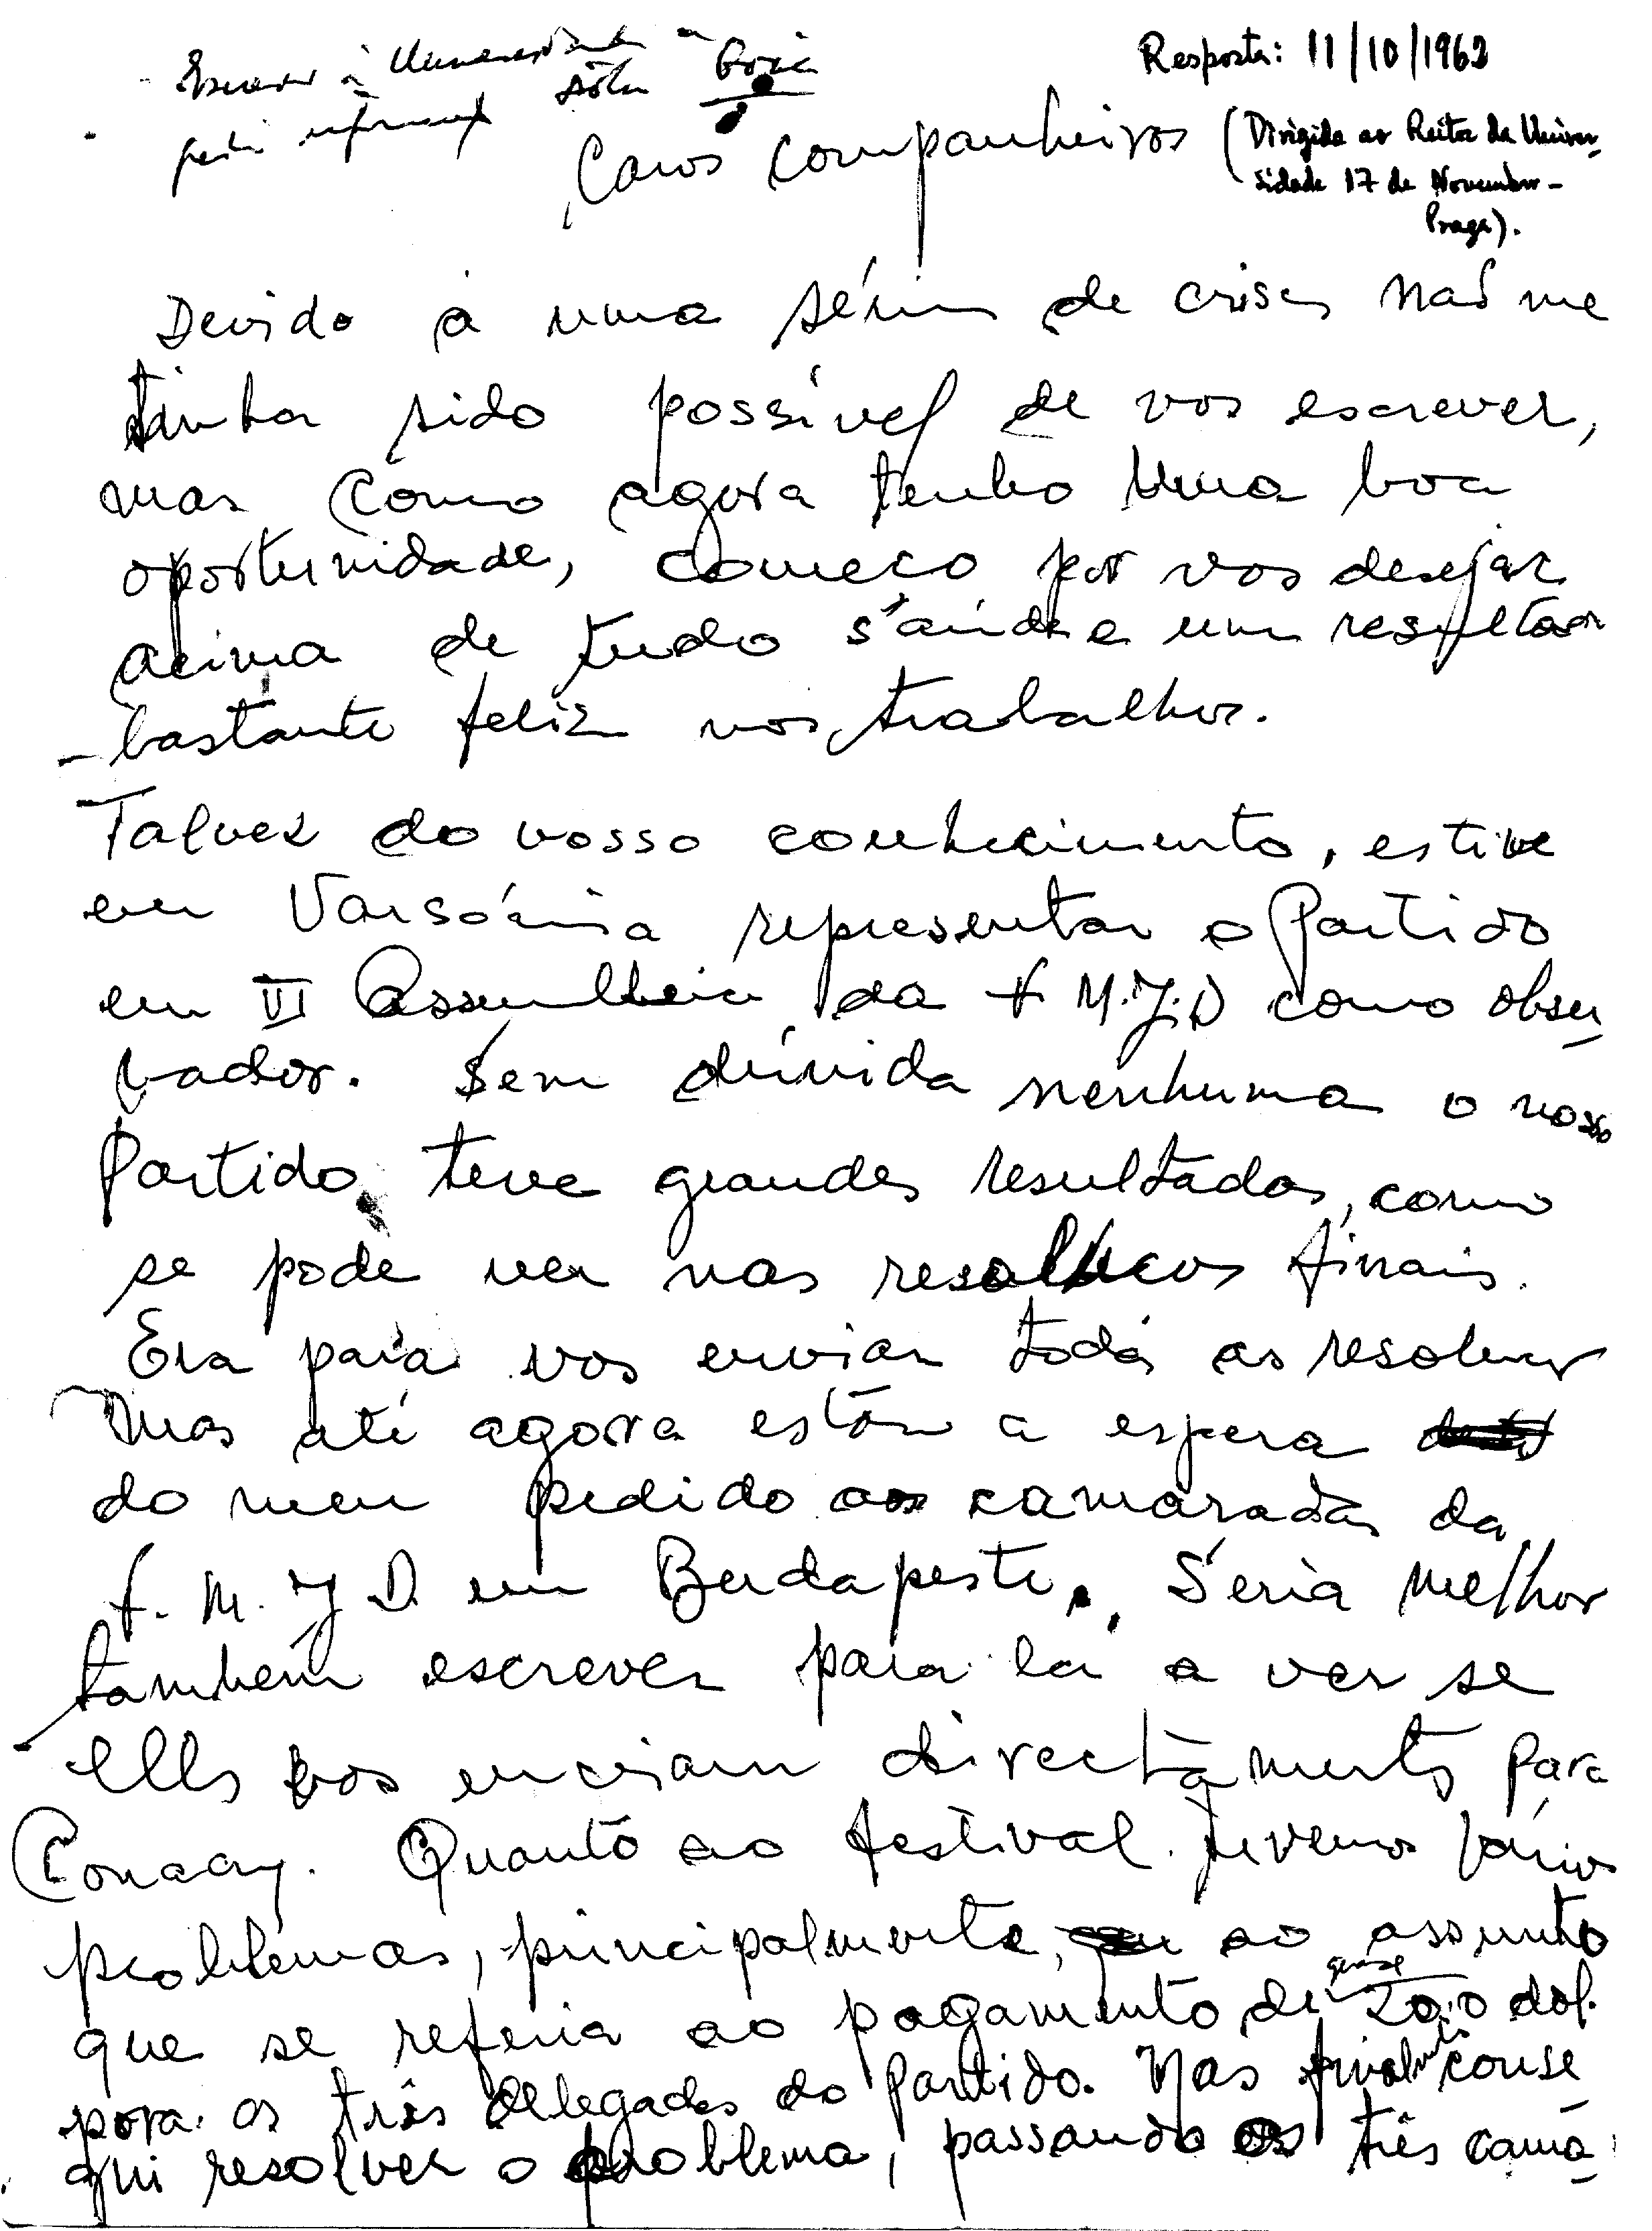 Escrever à Universidade -
Resposta: 11/10/1962
Caros companheiros
(Dirigida ao Reitor da Univer-
sidade 17 de Novembro -
Praga).
Devido à uma série de crises não me
tinha sido possível de vos escrever,
mas como agora tenho uma boa
oportunidade, começo por vos desejar
acima de tudo saúde e um resultado
bastante feliz nos trabalhos.
Talvez do vosso conhecimento, estive
em Varsóvia representar o Partido
em VI Assembleia da F.M.J.D como obser-
vador. Sem dúvida nenhuma o nosso
Partido teve grandes resultados, como
se pode ver nas resoluções finais.
Era para vos enviar todas as resoluções
mas até agora estão a espera
do meu pedido aos camaradas da
F.M.J.D. em Budapeste. Seria melhor
também escrever para lá a ver se
elles vos enviam directamente para
Conacry. Quanto ao festival. tivemos vários
problemas, principalmente, ao assunto
que se referia ao pagamento de quase 200 dol.
para os três delegados do Partido. Mas finalmente conse
gui resolver o problema, passando os três cama-